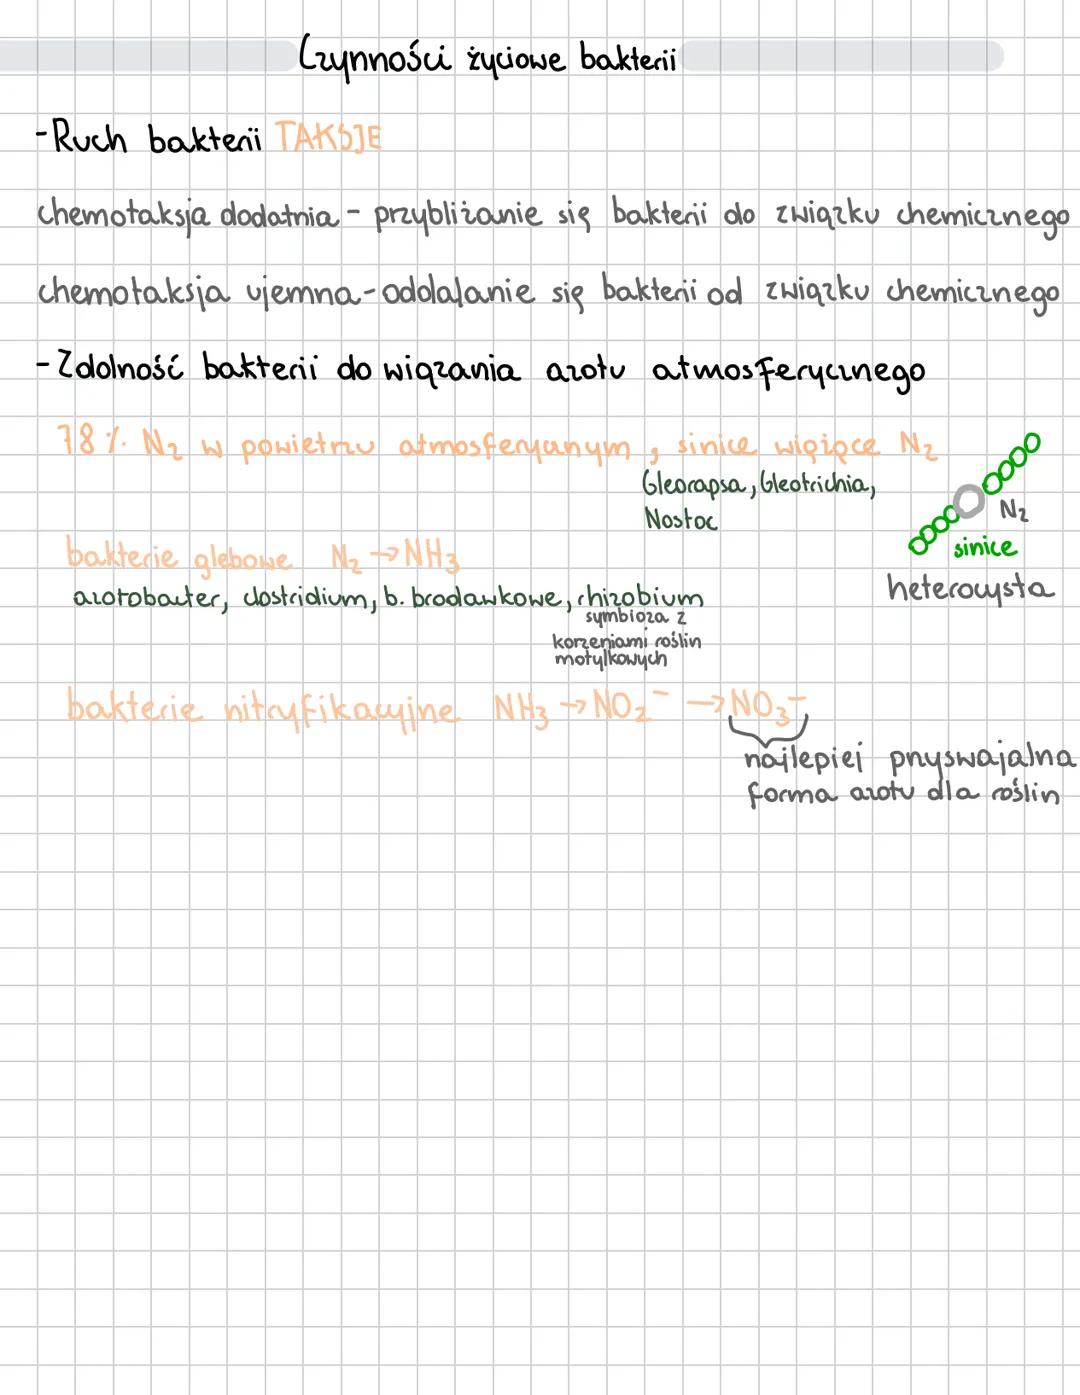 Czynności życiowe bakterii
-Ruch bakterii TAKSJE
chemotaksja dodatnia - przybliżanie się bakterii do związku chemicznego
chemotaksja ujemna-oddalanie się bakterii od związku chemicznego
-Zdolność bakterii do wiązania azotu atmosferycznego
78% N₂ w powietrzu atmosferycznym, sinice wiążące N₂
Gleocapsa, Gleotrichia,
Nostoc
N₂
sinice
heterocysta
bakterie glebowe N₂ → NH₃
azotobacter, clostridium, b. brodawkowe, rhizobium
symbioza z
korzeniami roślin
motylkowych
bakterie nitryfikacyjne NH₃ → NO₂⁻ → NO₃⁻
najlepiej przyswajalna
forma azotu dla roślin